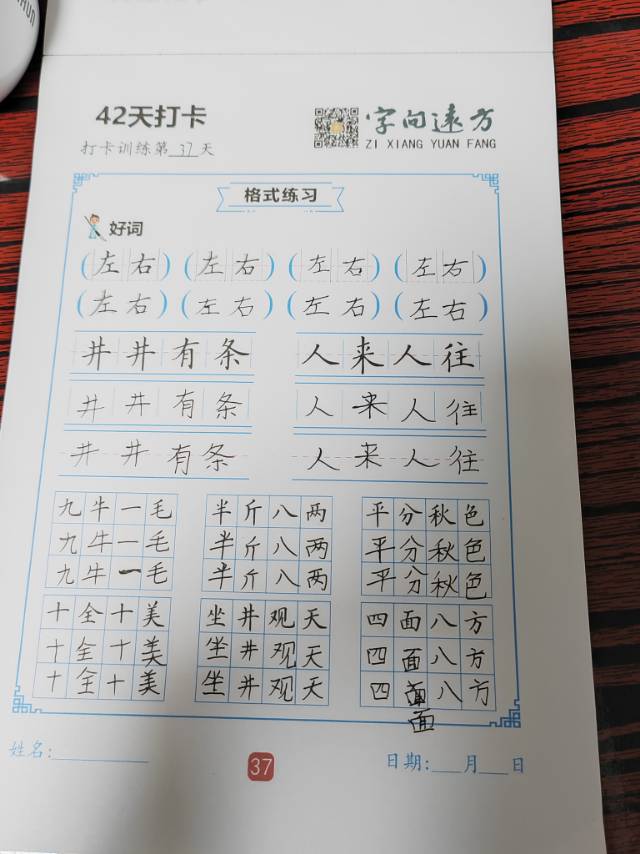 42天打卡
打卡训练第37天
字向遠方
ZI XIANG YUAN FANG
格式练习
好词
(左右) (左右) (左右) (左右)
(左右) (左右) (左右) (左右)
井井有条 人来人往
井井有条 人来人往
井井有条 人来人往
九牛一毛 半斤八两 平分秋色
九牛一毛 半斤八两 平分秋色
九牛一毛 半斤八两 平分秋色
十全十美 坐井观天 四面八方
十全十美 坐井观天 四面八方
十全十美 坐井观天 四面八方
面
姓名:
37
日期: 月 日